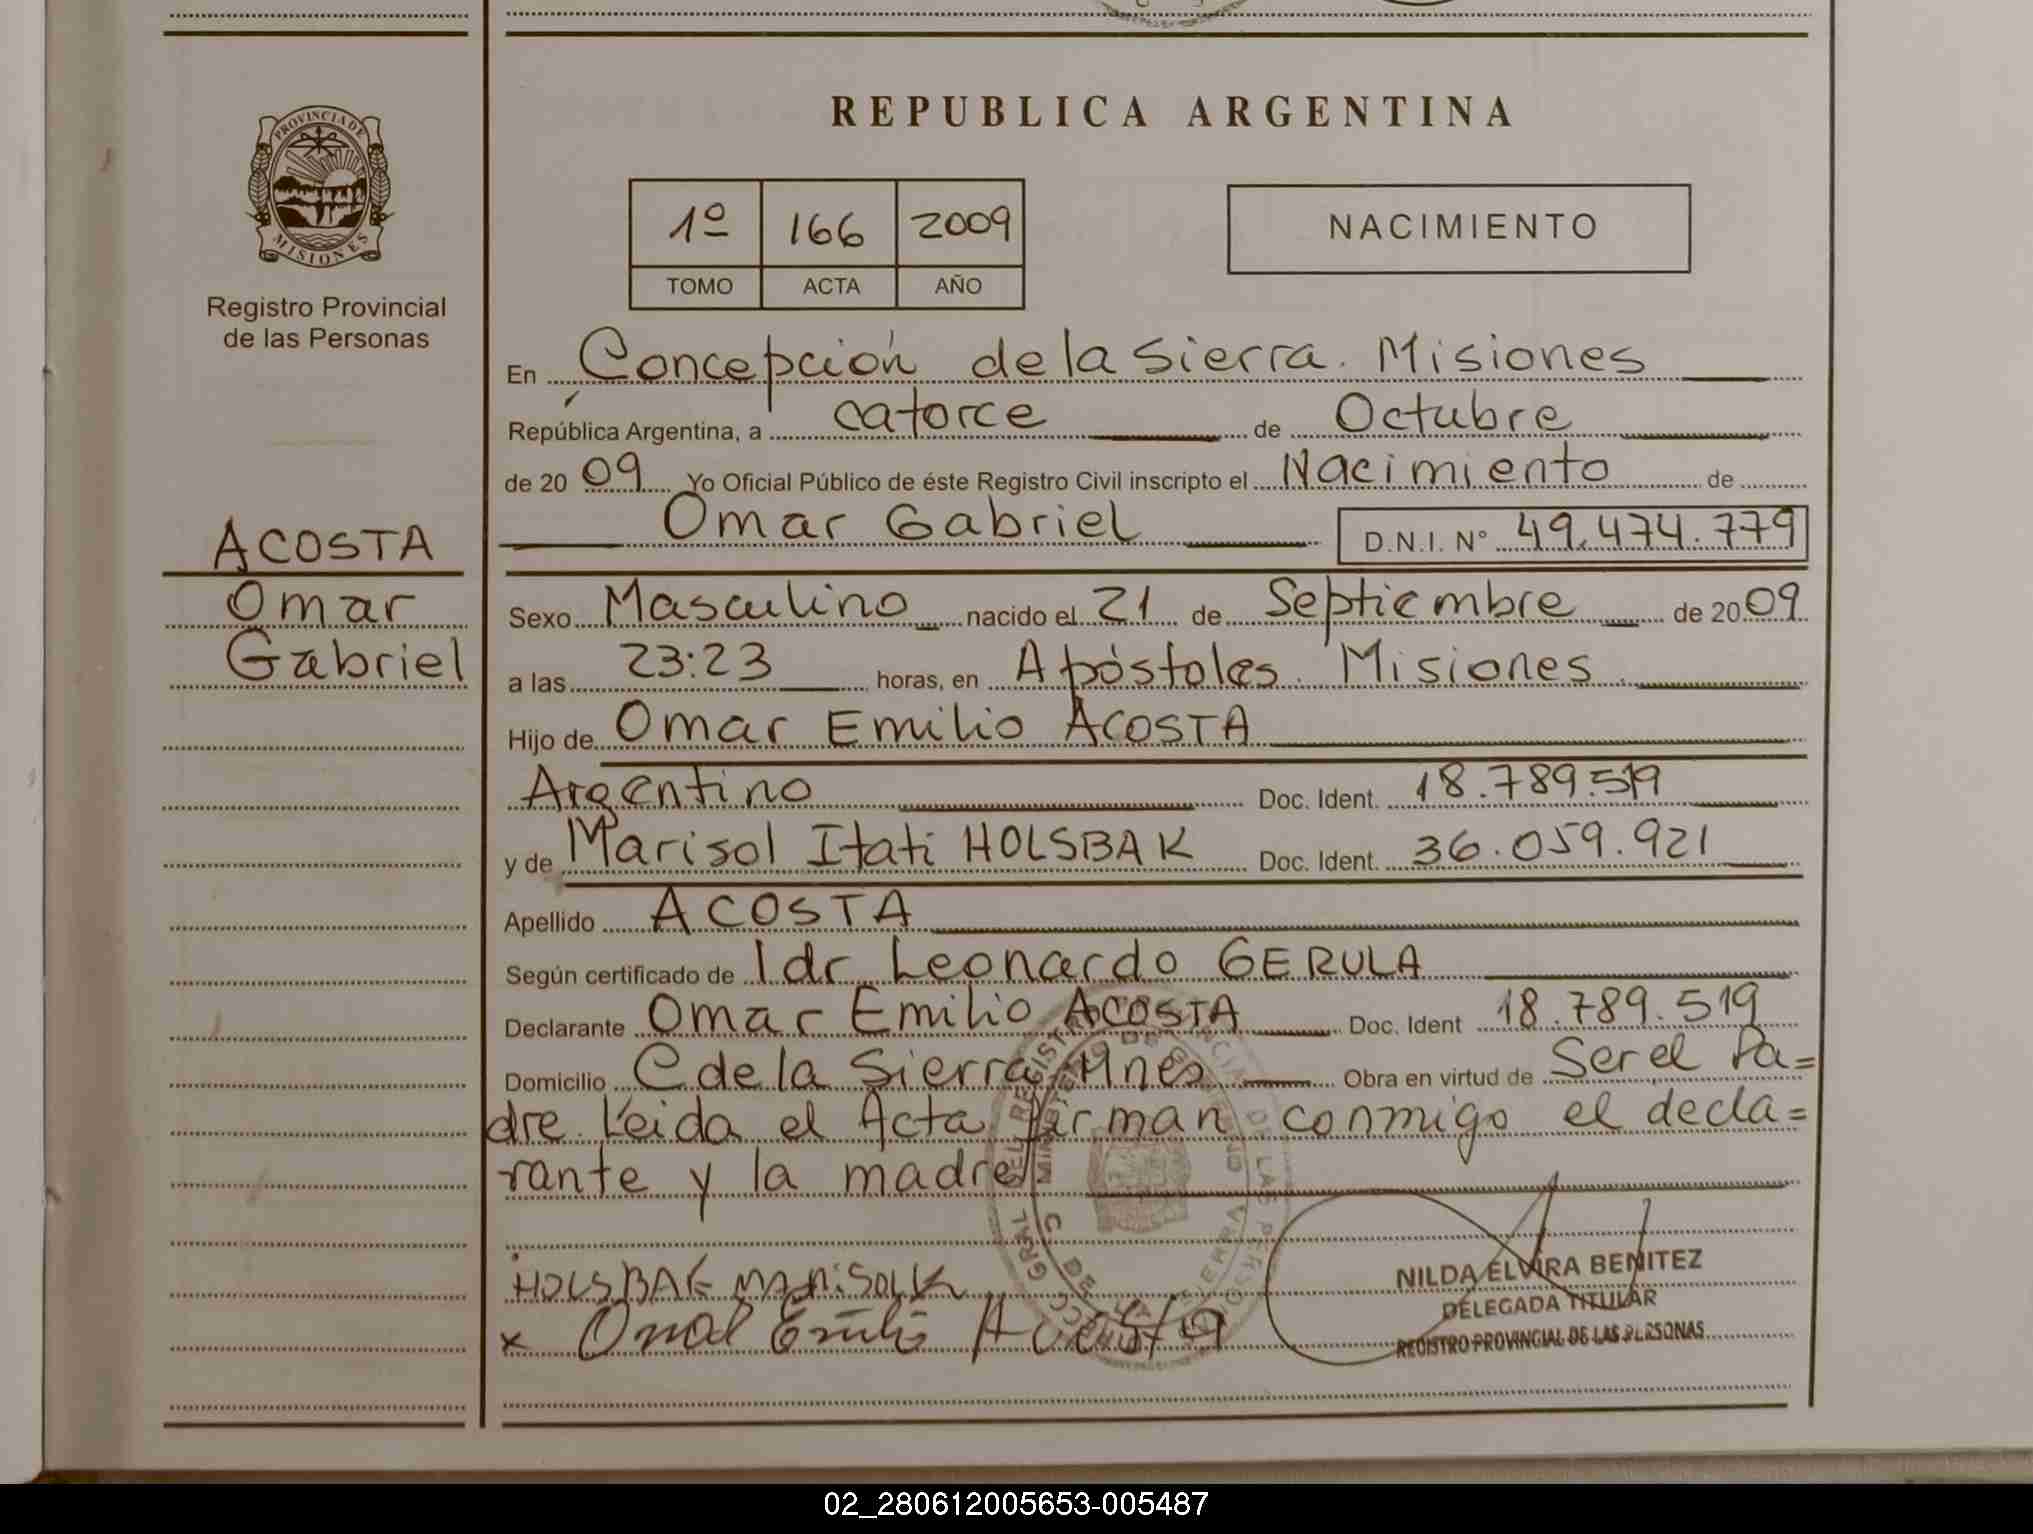 REPUBLICA ARGENTINA
PROVINCIA DE MISIONES
Registro Provincial
de las Personas
1º 166 2009
TOMO ACTA AÑO
NACIMIENTO
En Concepción de la Sierra. Misiones
República Argentina, a catorce de Octubre
de 20 09 Yo Oficial Público de éste Registro Civil inscripto el Nacimiento de
Omar Gabriel D.N.I. Nº 49.474.779
ACOSTA
Omar
Gabriel
Sexo Masculino nacido el 21 de Septiembre de 20 09
a las 23:23 horas, en Apóstoles. Misiones
Hijo de Omar Emilio ACOSTA
Argentino Doc. Ident. 18.789.519
y de Marisol Itati HOLSBAK Doc. Ident. 36.059.921
Apellido ACOSTA
Según certificado de Leonardo GERULA
Declarante Omar Emilio ACOSTA Doc. Ident 18.789.519
Domicilio C de la Sierra Mnes Obra en virtud de Ser el Pa=
dre. Leida el Acta firman conmigo el decla=
rante y la madre
HOLSBAK
Emilio Acosta
NILDA ELVIRA BENITEZ
DELEGADA TITULAR
REGISTRO PROVINCIAL DE LAS PERSONAS
02_280612005653-005487